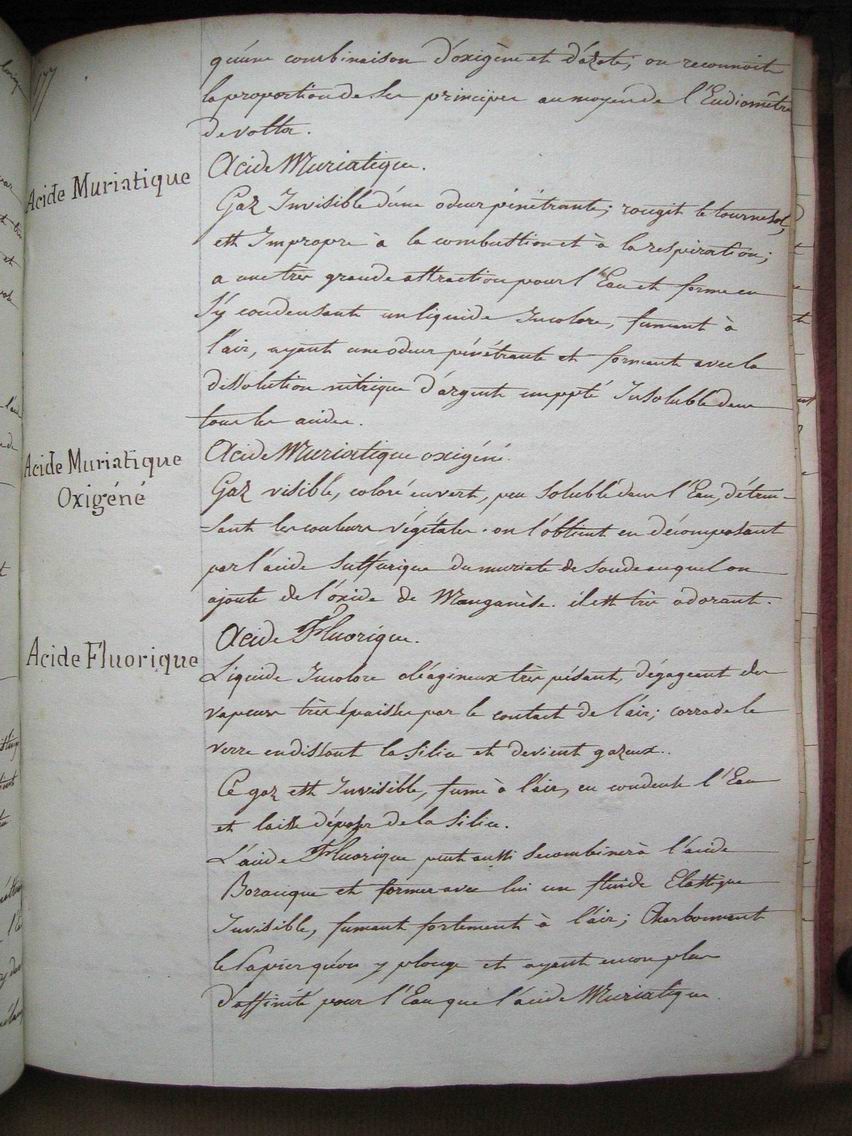 177
qu'une combinaison d'oxigène et d'azote; on reconnoit
la proportion de ses principes au moyen de l'Eudiomêtre
de volta.
Acide Muriatique
Acide Muriatique.
Gaz Invisible d'une odeur pénétrante; rougit le tournesol,
est Impropre à la combustion et à la respiration;
a une très grande attraction pour l'Eau et forme en
s'y condensant un liquide Incolore, fumant à
l'air, ayant une odeur pénétrante et formant avec la
dissolution nitrique d'argent un ppté Insoluble dans
tous les acides.
Acide Muriatique
Oxigéné
Acide Muriatique oxigéné.
Gaz visible, coloré en vert, peu soluble dans l'Eau, détrui-
sant les couleurs végétales. on l'obtient en décomposant
par l'acide sulfurique du muriate de soude auquel on
ajoute de l'oxide de Manganèse. il est très odorant.
Acide Fluorique
Acide Fluorique.
Liquide Incolore oléagineux très pésant, dégageant des
vapeurs très épaisses par le contact de l'air; corrode le
verre en dissolvant la silice et devient gazeux.
Ce gaz est Invisible, fume à l'air, en condense l'Eau
et laisse déposer de la silice.
L'acide Fluorique peut aussi se combiner à l'acide
Boracique et former avec lui un fluide Elastique
Invisible, fumant fortement à l'air; Charbonnant
le Papier qu'on y plonge et ayant encore plus
d'affinité pour l'Eau que l'acide Muriatique.